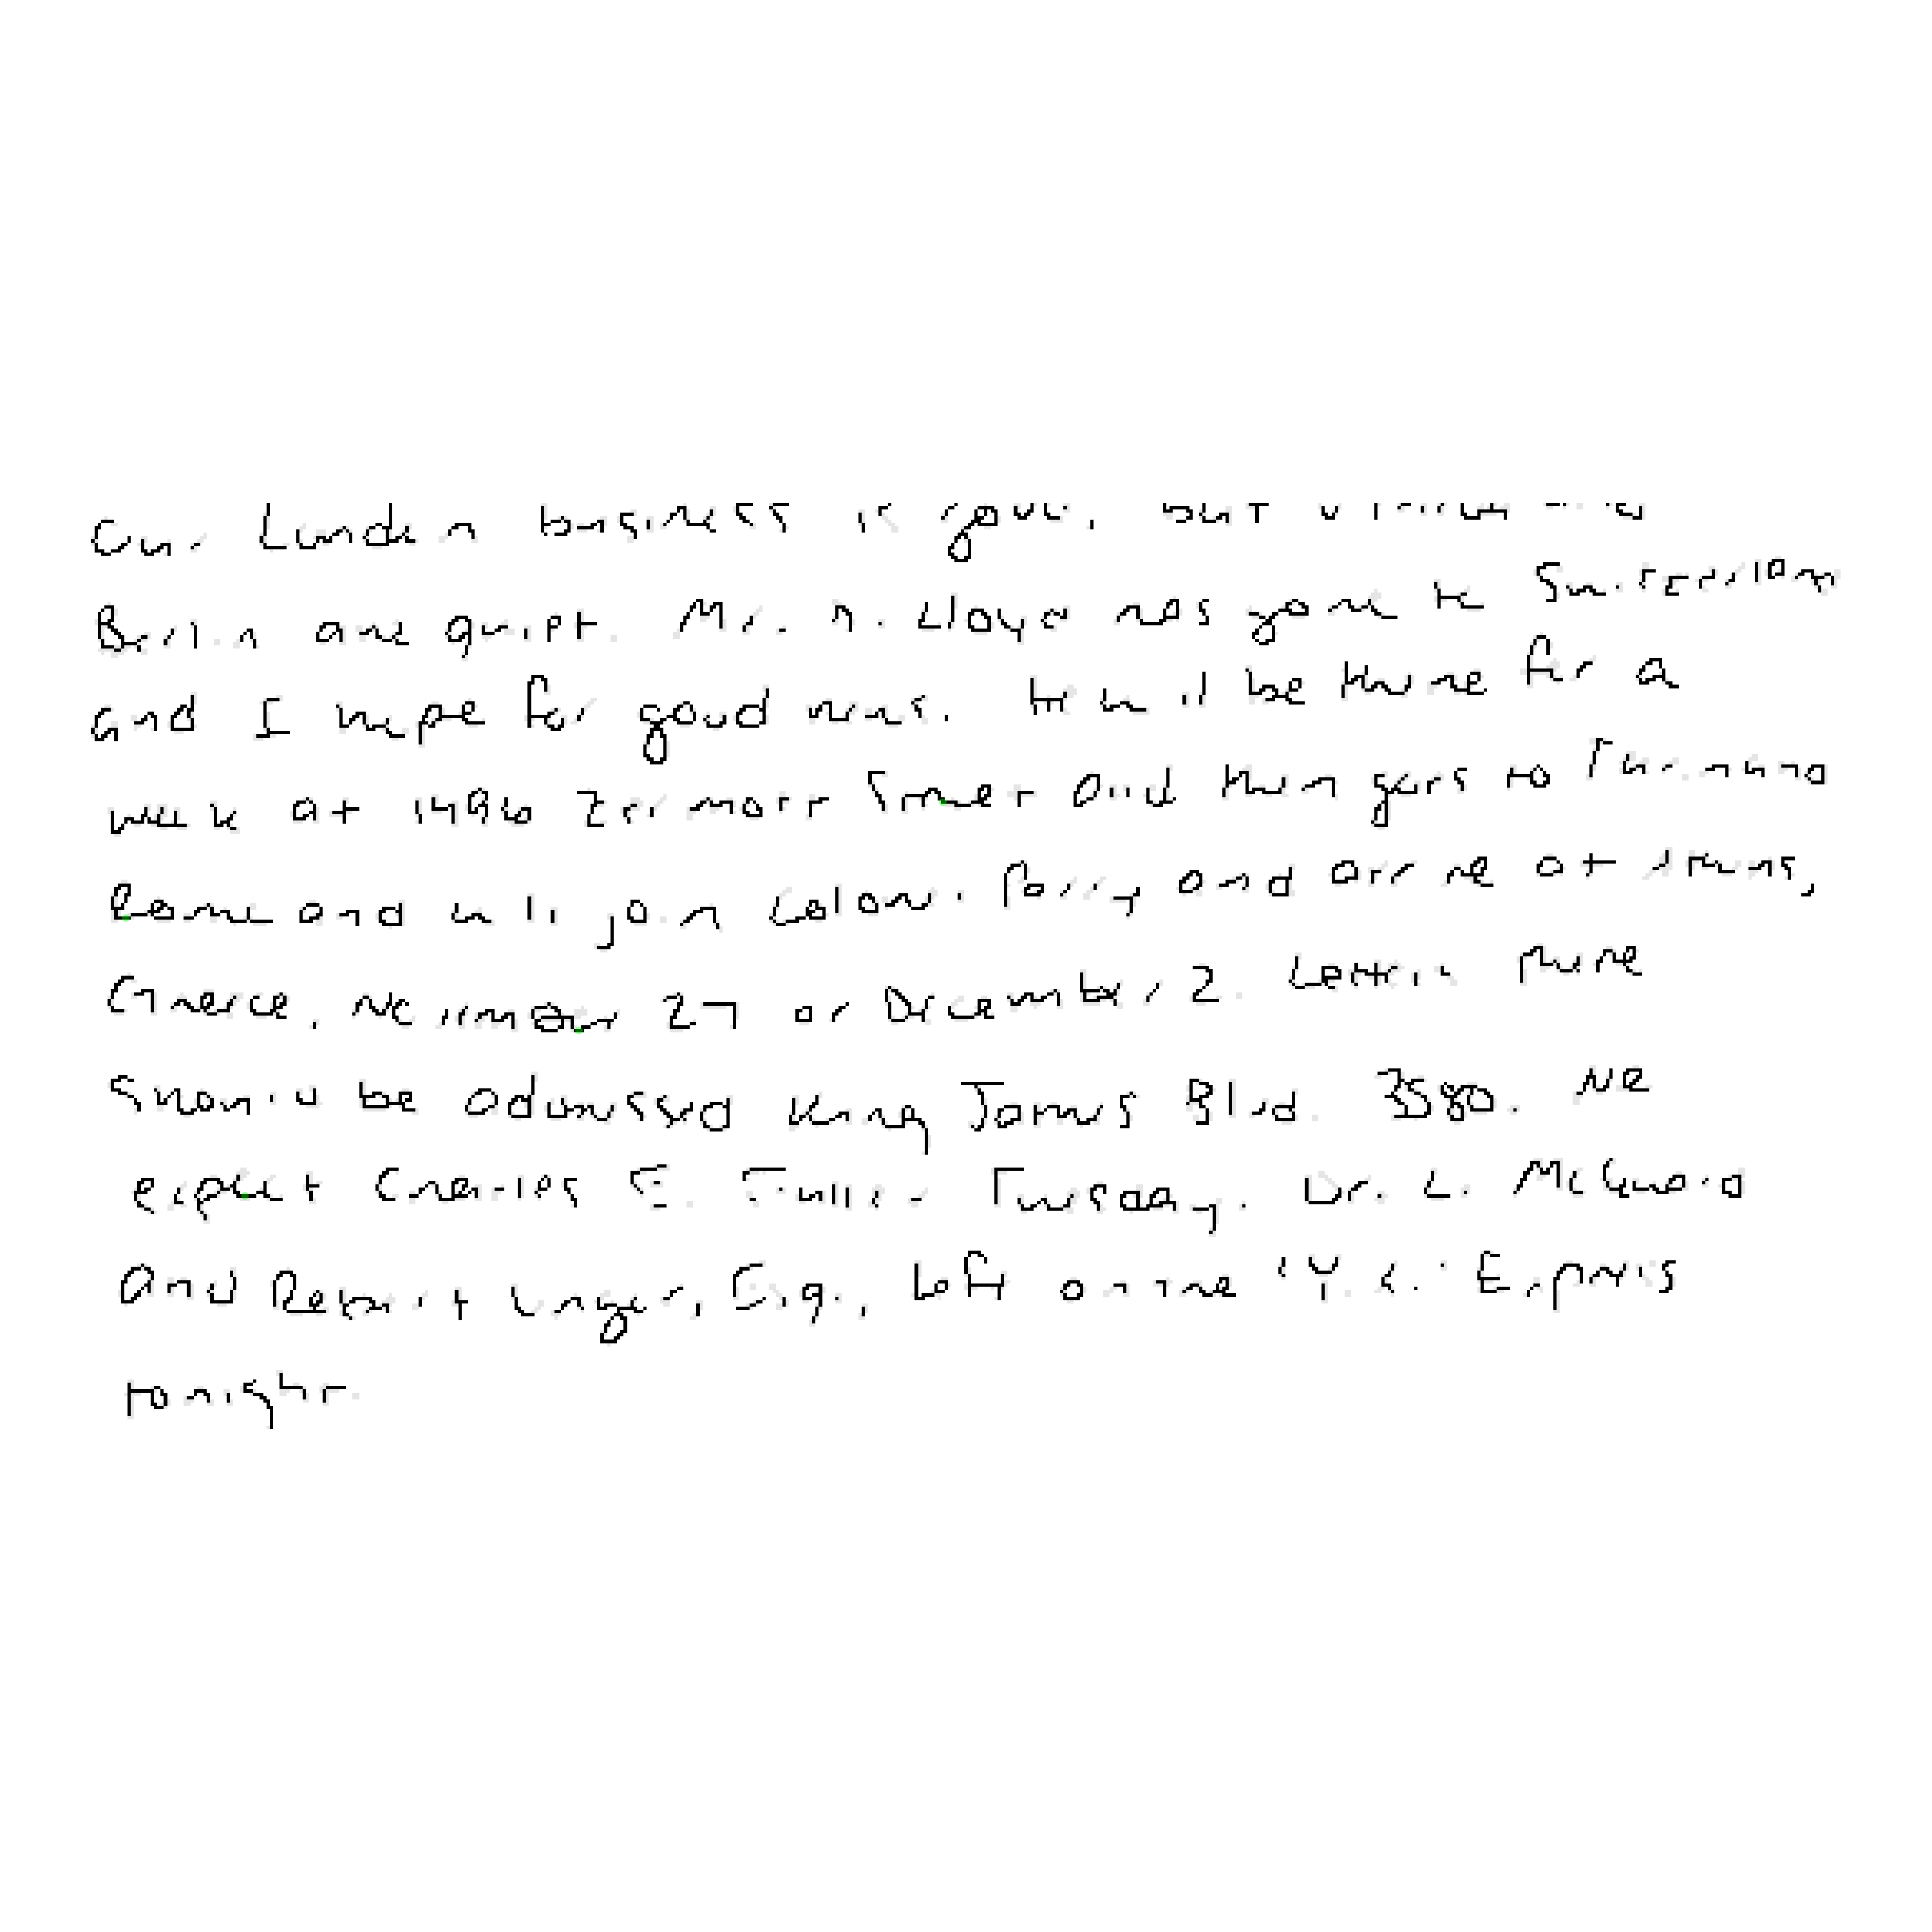 Our London business is good, but Vienna and
Berlin are quiet. Mr. D. Lloyd has gone to Switzerland
and I hope for good news. He will be there for a
week at 1496 Zermott Street and then goes to Turin and
Rome and will join Colonel Parry and arrive at Athens,
Greece, November 27 or December 2. Letters there
should be addressed King James Blvd. 3580. We
expect Charles E. Fuller Tuesday. Dr. L. McQuaid
and Robert Unger, Esq., left on the "Y.X." Express
tonight.